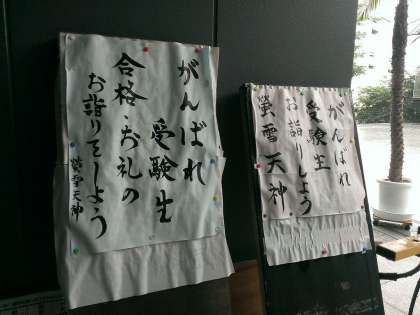 がんばれ
受験生
合格・お礼の
お詣りをしよう
螢雪天神
がんばれ
受験生
お詣りしよう
螢雪天神